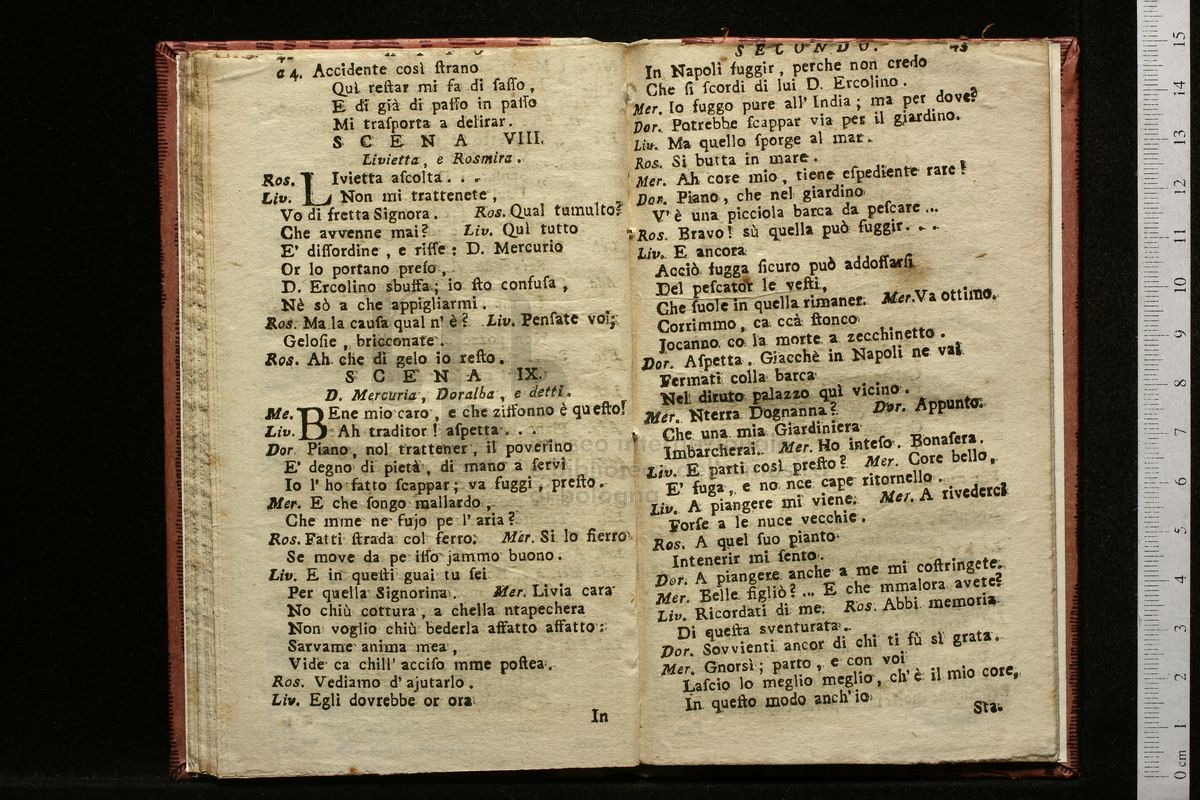 a 4. Accidente così ſtrano
Quì reſtar mi fa di ſaſſo,
E di già di paſſo in paſſo
Mi traſporta a delirar.
SCENA VIII.
Livietta, e Rosmira.
Ros. LIvietta aſcolta...
Liv. Non mi trattenete,
Vo di fretta Signora. Ros. Qual tumulto?
Che avvenne mai? Liv. Quì tutto
E' diſſordine, e riſſe: D. Mercurio
Or lo portano preſo,
D. Ercolino sbuffa; io ſto confuſa,
Nè sò a che appigliarmi.
Ros. Ma la cauſa qual n'è? Liv. Penſate voi;
Geloſie, bricconate.
Ros. Ah che di gelo io reſto.
SCENA IX.
D. Mercuria, Doralba, e detti.
Me. BEne mio caro, e che ziffonno è queſto!
Liv. Ah traditor! aſpetta...
Dor. Piano, nol trattener, il poverino
E' degno di pietà, di mano a ſervi
Io l'ho fatto ſcappar; va fuggi, preſto.
Mer. E che ſongo mallardo,
Che mme ne fujo pe l'aria?
Ros. Fatti ſtrada col ferro. Mer. Si lo fierro
Se move da pe iſſo jammo buono.
Liv. E in queſti guai tu ſei
Per quella Signorina. Mer. Livia cara
No chiù cottura, a chella ntapechera
Non voglio chiù bederla affatto affatto:
Sarvame anima mea,
Vide ca chill' acciſo mme poſtea.
Ros. Vediamo d'ajutarlo.
Liv. Egli dovrebbe or ora
In
SECONDO. 43
In Napoli fuggir, perche non credo
Che ſi ſcordi di lui D. Ercolino.
Mer. Io fuggo pure all' India; ma per dove?
Dor. Potrebbe ſcappar via per il giardino.
Liv. Ma quello ſporge al mar.
Ros. Si butta in mare.
Mer. Ah core mio, tiene eſpediente rare!
Dor. Piano, che nel giardino
V'è una picciola barca da peſcare...
Ros. Bravo! sù quella può fuggir...
Liv. E ancora
Acciò fugga ſicuro può addoſſarſi
Del peſcator le veſti,
Che ſuole in quella rimaner. Mer. Va ottimo.
Corrimmo, ca ccà ſtonco
Jocanno co la morte a zecchinetto.
Dor. Aſpetta. Giacchè in Napoli ne vai
Fermati colla barca
Nel diruto palazzo quì vicino.
Mer. Nterra Dognanna? Dor. Appunto.
Che una mia Giardiniera
Imbarcherai. Mer. Ho inteſo. Bonaſera.
Liv. E parti così preſto? Mer. Core bello,
E' fuga, e no nce cape ritornello.
Liv. A piangere mi viene. Mer. A rivederci
Forſe a le nuce vecchie.
Ros. A quel ſuo pianto
Intenerir mi ſento.
Dor. A piangere anche a me mi coſtringete.
Mer. Belle figliò?... E che mmalora avete?
Liv. Ricordati di me. Ros. Abbi memoria
Di queſta sventurata.
Dor. Sovvienti ancor di chi ti fù sì grata.
Mer. Gnorsì; parto, e con voi
Laſcio lo meglio meglio, ch'è il mio core,
In queſto modo anch'io
Sta.